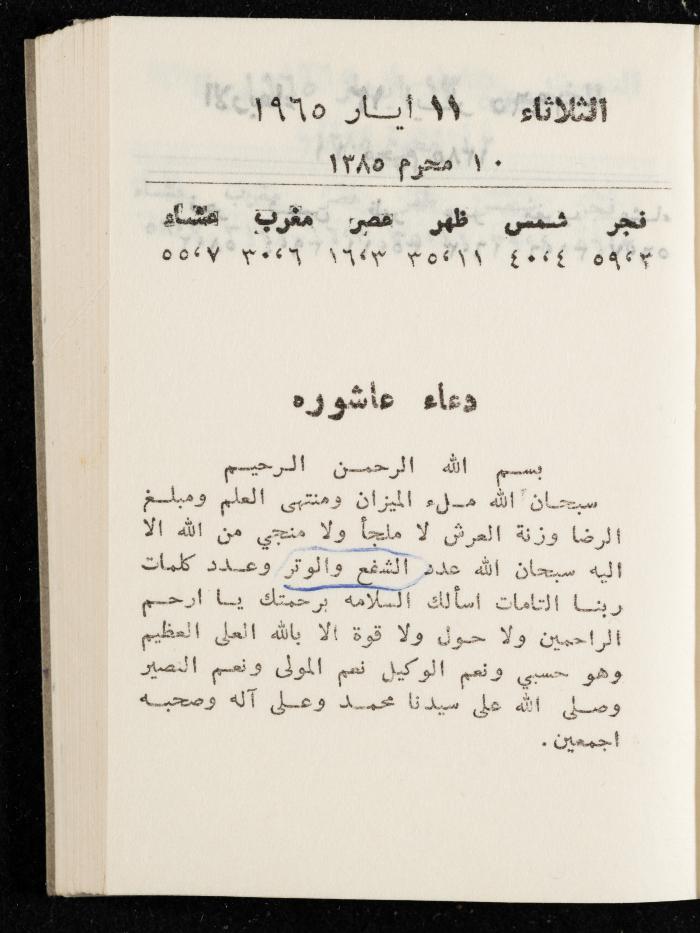 الثلاثاء ١١ ايـار ١٩٦٥
١٠ محرم ١٣٨٥
فجر شمس ظهر عصر مغرب عشاء
٥٩،٣ ٤٠،٤ ٣٥،١١ ١٦،٣ ٣٠،٦ ٥٥،٧
دعاء عاشوره
بسم الله الرحمن الرحيم
سبحان الله ملء الميزان ومنتهى العلم ومبلغ
الرضا وزنة العرش لا ملجأ ولا منجي من الله الا
اليه سبحان الله عدد الشفع والوتر وعدد كلمات
ربنا التامات اسألك السلامه برحمتك يا ارحم
الراحمين ولا حول ولا قوة الا بالله العلى العظيم
وهو حسبي ونعم الوكيل نعم المولى ونعم النصير
وصلى الله على سيدنا محمد وعلى آله وصحبه
اجمعين.